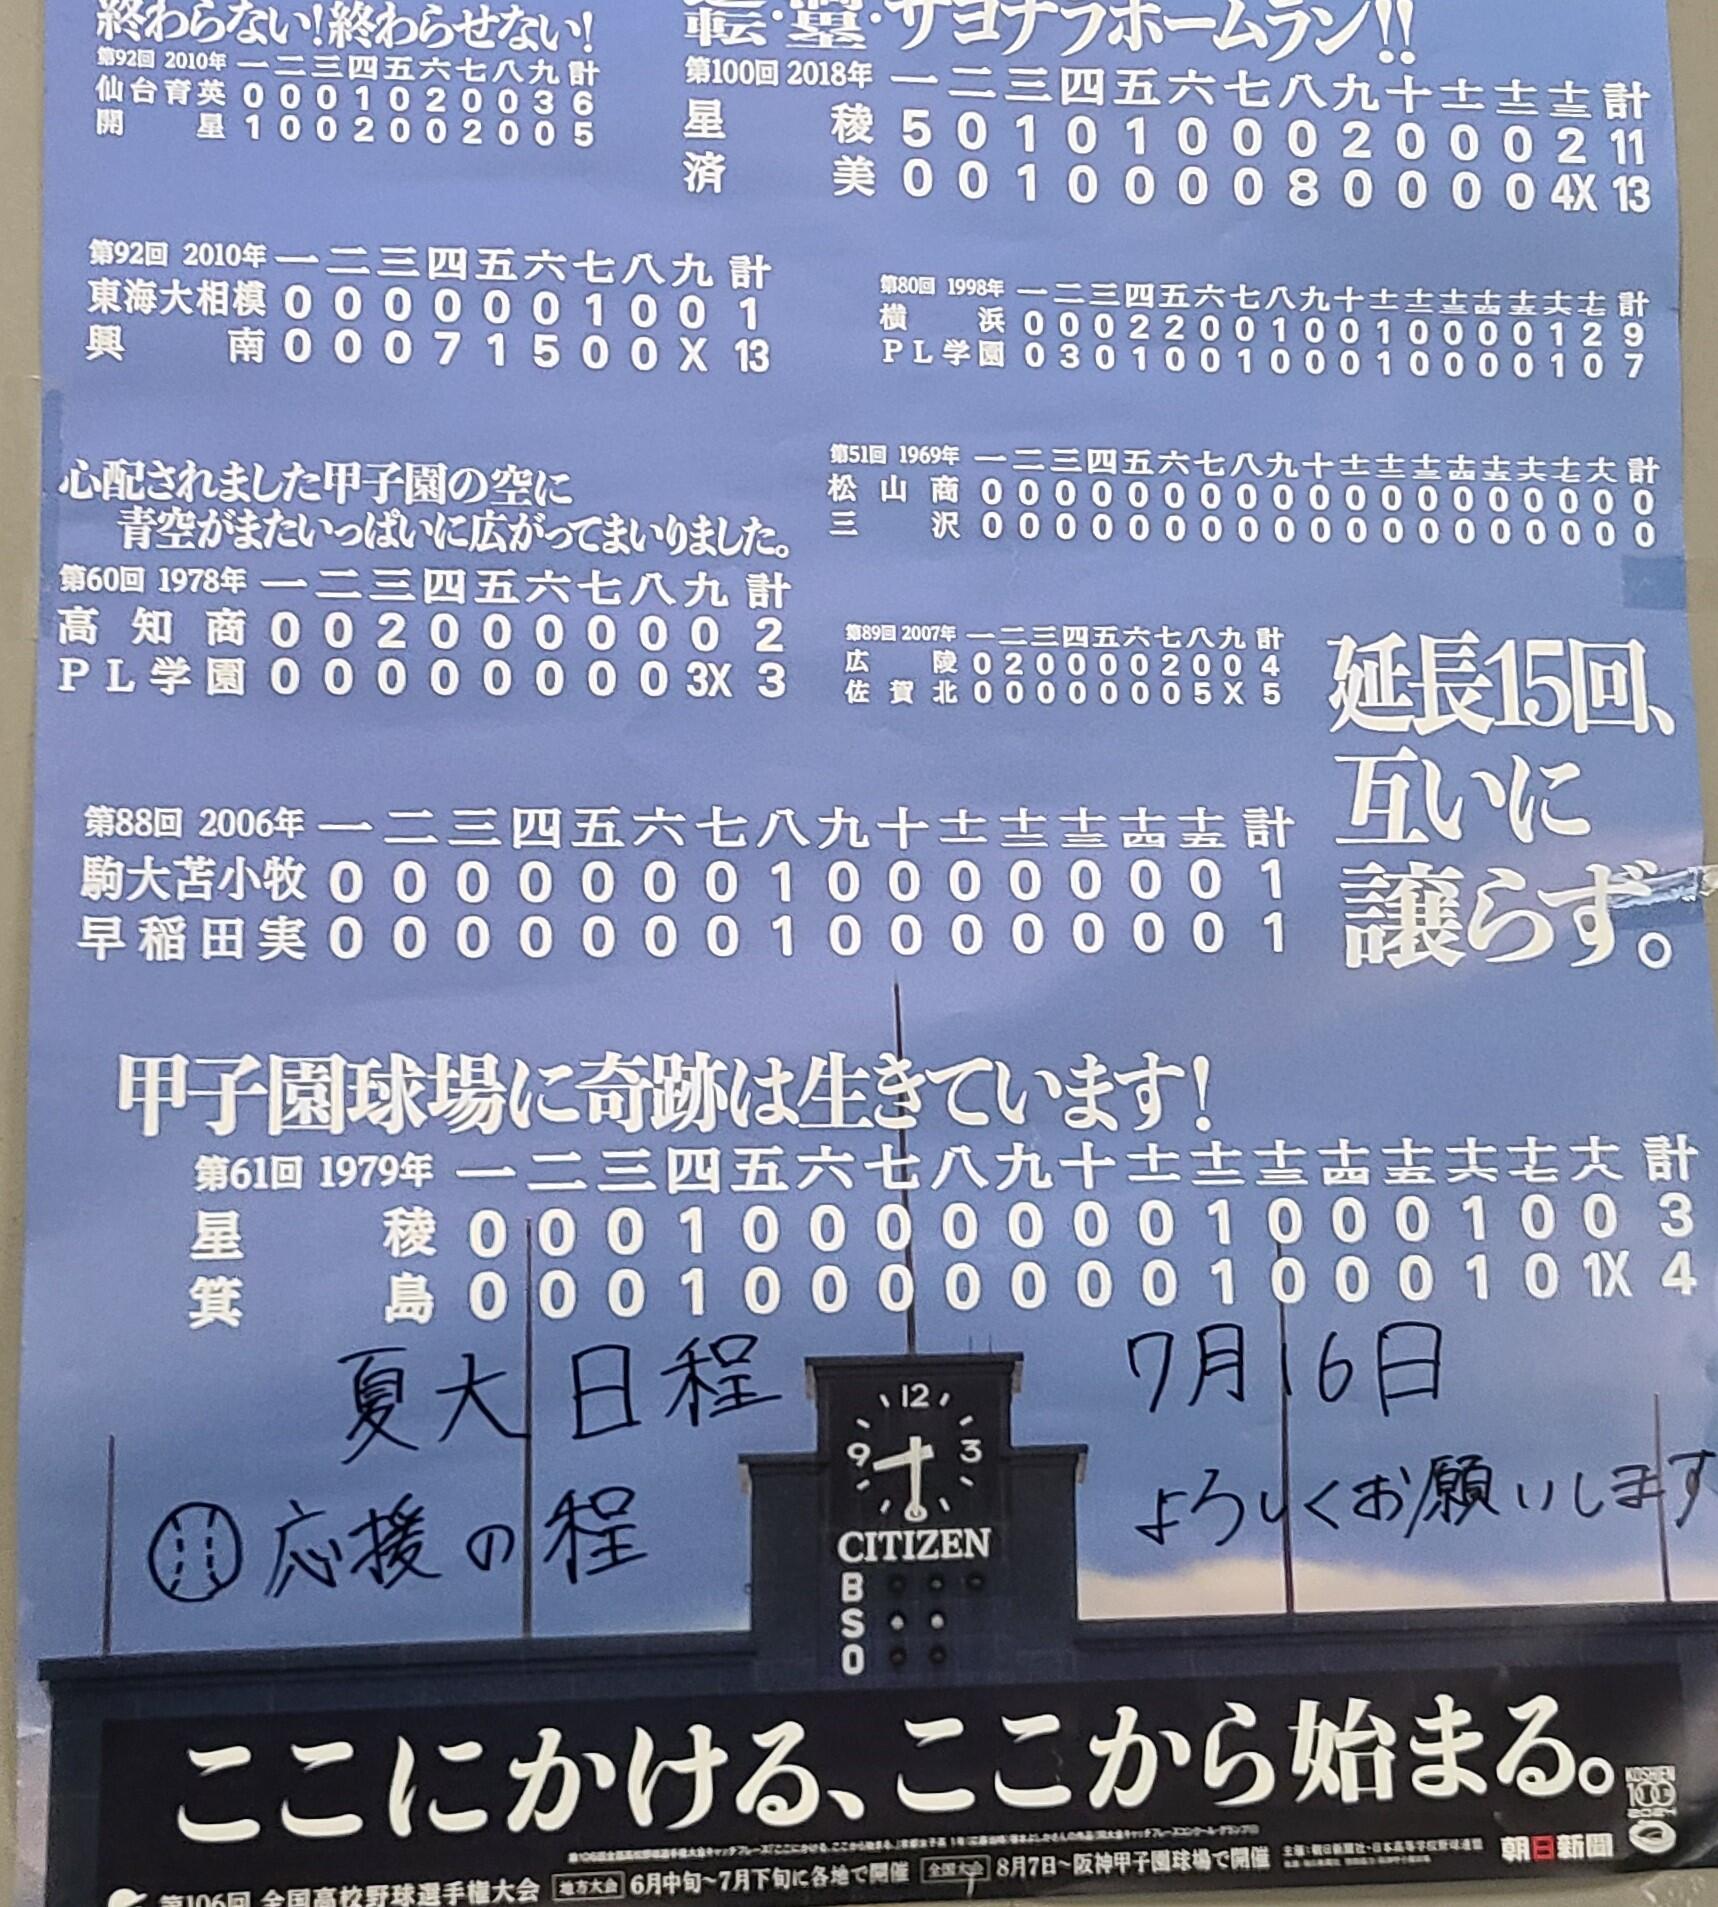 終わらない!終わらせない!
第92回 2010年 一 二 三 四 五 六 七 八 九 計
仙台育英 0 0 0 1 0 2 0 0 3 6
開星 1 0 0 2 0 0 2 0 0 5
転・塁・サヨナラホームラン!!
第100回 2018年 一 二 三 四 五 六 七 八 九 十 十一 十二 十三 計
星稜 5 0 1 0 1 0 0 0 2 0 0 0 2 11
済美 0 0 1 0 0 0 0 8 0 0 0 0 4X 13
第92回 2010年 一 二 三 四 五 六 七 八 九 計
東海大相模 0 0 0 0 0 0 1 0 0 1
興南 0 0 0 7 1 5 0 0 X 13
第80回 1998年 一 二 三 四 五 六 七 八 九 十 十一 十二 十三 十四 十五 十六 十七 計
横浜 0 0 0 2 2 0 0 1 0 0 1 0 0 0 0 1 2 9
PL学園 0 3 0 1 0 0 1 0 0 0 1 0 0 0 0 1 0 7
第51回 1969年 一 二 三 四 五 六 七 八 九 十 十一 十二 十三 十四 十五 十六 十七 十八 計
松山商 0 0 0 0 0 0 0 0 0 0 0 0 0 0 0 0 0 0 0
三沢 0 0 0 0 0 0 0 0 0 0 0 0 0 0 0 0 0 0 0
心配されました甲子園の空に
青空がまたいっぱいに広がってまいりました。
第60回 1978年 一 二 三 四 五 六 七 八 九 計
高知商 0 0 2 0 0 0 0 0 0 2
PL学園 0 0 0 0 0 0 0 0 3X 3
第89回 2007年 一 二 三 四 五 六 七 八 九 計
広陵 0 2 0 0 0 0 2 0 0 4
佐賀北 0 0 0 0 0 0 0 5 X 5
延長15回、
互いに
譲らず。
第88回 2006年 一 二 三 四 五 六 七 八 九 十 十一 十二 十三 十四 十五 計
駒大苫小牧 0 0 0 0 0 0 0 1 0 0 0 0 0 0 0 1
早稲田実 0 0 0 0 0 0 0 1 0 0 0 0 0 0 0 1
甲子園球場に奇跡は生きています!
第61回 1979年 一 二 三 四 五 六 七 八 九 十 十一 十二 十三 十四 十五 十六 十七 十八 計
星稜 0 0 0 1 0 0 0 0 0 0 0 1 0 0 0 1 0 0 3
箕島 0 0 0 1 0 0 0 0 0 0 0 1 0 0 0 1 0 1X 4
夏大日程 7月16日
応援の程 よろしくお願いします
12
9 3
CITIZEN
B
S
O
ここにかける、ここから始まる。
KOSHIEN
朝日新聞
第106回 全国高校野球選手権大会 地方大会 6月中旬~7月下旬に各地で開催 全国大会 8月7日~阪神甲子園球場で開催
主催:朝日新聞社・日本高等学校野球連盟